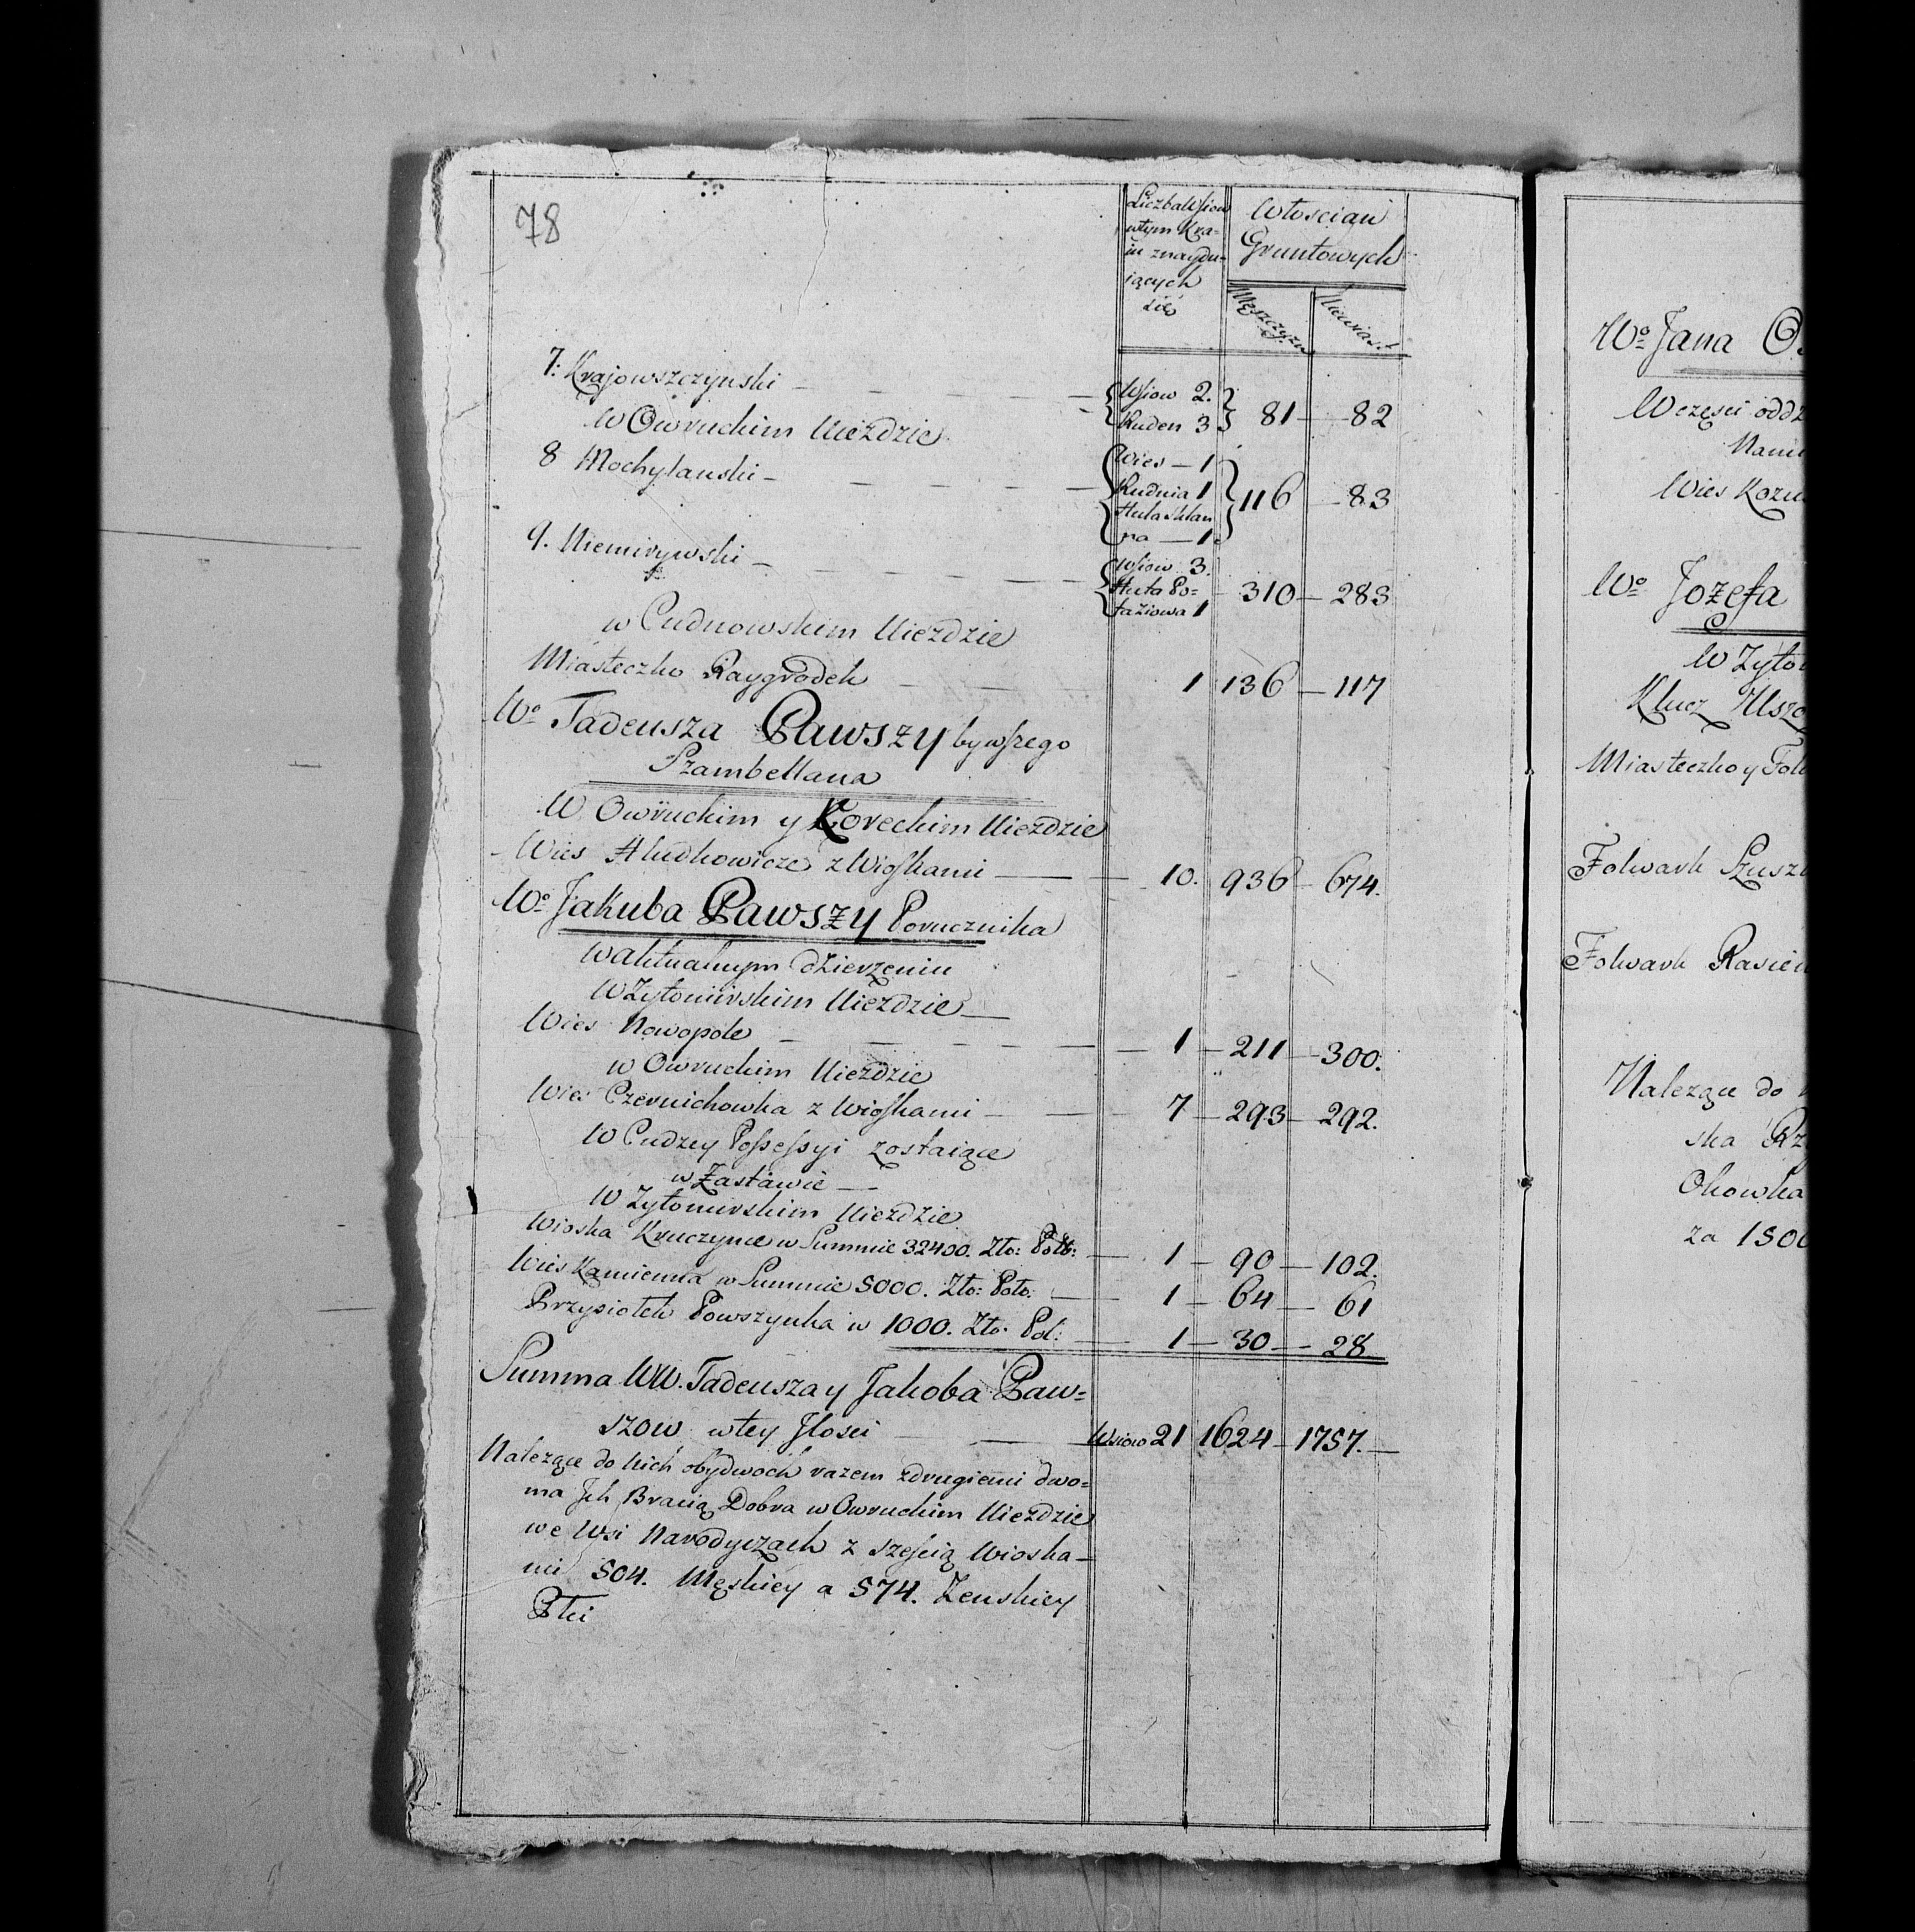 78
Liczba Wsiow
w tym Kra-
iu znaydu-
iących
się
Włoscian
Gruntowych
Męszczyzn
Niewiast
7. Krajowszczynski — Wsiow 2. Ruden 3 81 — 82
W Owruckim Uieździe
8 Mochylanski — Wies — 1 Rudnia 1 Huta szklan na — 1. 116 — 83
9. Niemirywski — Wsiow 3. Huta Po= tażiowa 1 310 — 283
w Cudnowskim Uieździe
Miasteczko Raygrodek — 1 136 — 117
Wo Tadeusza Pawszy bywszego
Szambellana
W Owruckim y Koreckim Uieździe
Wies Hludkowicze z Wioskami — 10. 936 — 674.
Wo Jakuba Pawszy Porucznika
w aktualnym dzierzeniu
W Zytomirskim Uieździe —
Wies Nowopole — 1 — 211 — 300.
w Owruckim Uieździe
Wies Czernichowka z Wioskami — 7 — 293 — 292.
W Cudzey Possessyi zostaiące
w Zastawie —
W Zytomirskim Uieździe
Wioska Kruczynce w Summie 32400. Zło: Pols: — 1 — 90 — 102.
Wies Kamienka w Summie 5000. Zło: Polo: — 1 — 64 — 61
Przysiołek Powszynka w 1000. Zło. Pol: — 1 — 30 — 28
Summa WW. Tadeusza y Jakoba Paw=
szow w tey Jlosci — Wsiow 21 1624 — 1757. —
Nalezące do Nich obydwoch razem z drugiemi dwo=
ma Jch Bracią Dobra w Owruckim Uieździe
we Wsi Narodyczach z szescią Wioska-
mi 504. Męskiey a 574. Zenskiey
Płci
Wo Jana
W częsci
Wies
Wo Jozefa
Klucz
Miasteczko y
Folwark
Folwark
Nalezące do
ska
Okowka
za